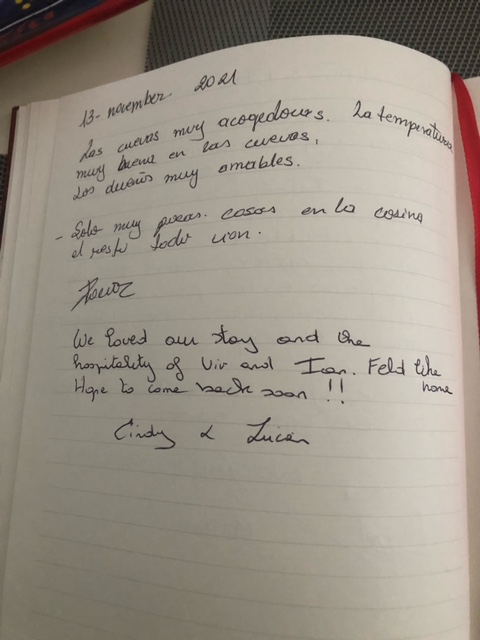 13-november. 2021
Las cuevas muy acogedours. La temperatura
muy buena en las cuevas,
Los dueños muy amables.
- Solo muy pocas. cosas en la cosina
el resto todo
We loved our stay and the
hospitality of Viv and Ian. Feld like
Hope to come back soon !! home
Cindy & Lucien